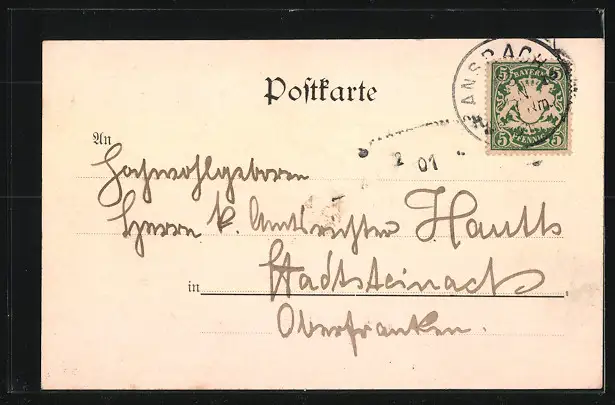 ANSBACH
5 BAYERN 5
5 PFENNIG 5
Postkarte
An
2 01
Hochwohlgeboren
Herrn k. Amtsrichter Hautts
in Stadtsteinach
Oberfranken.